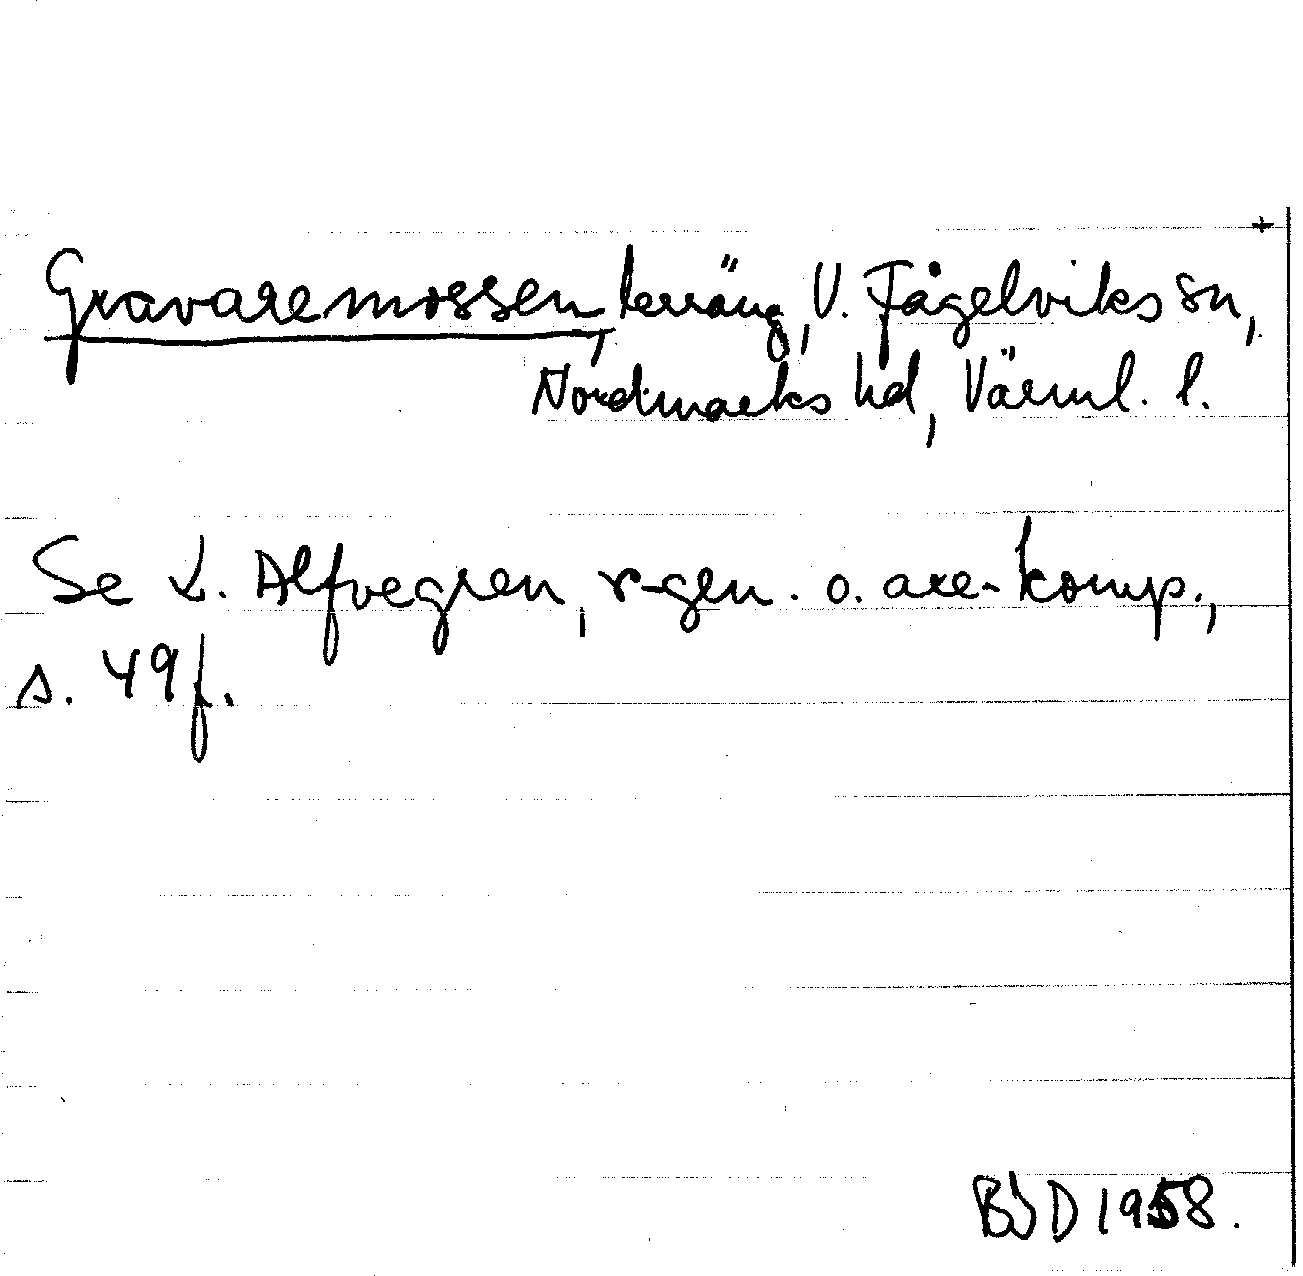 +
Gravaremossen, terräng, V. Fågelviks sn,
Nordmarks hd, Värml. l.
Se L. Alfvegren, r-gen. o. are-komp.,
s. 49f.
BJD 1958.